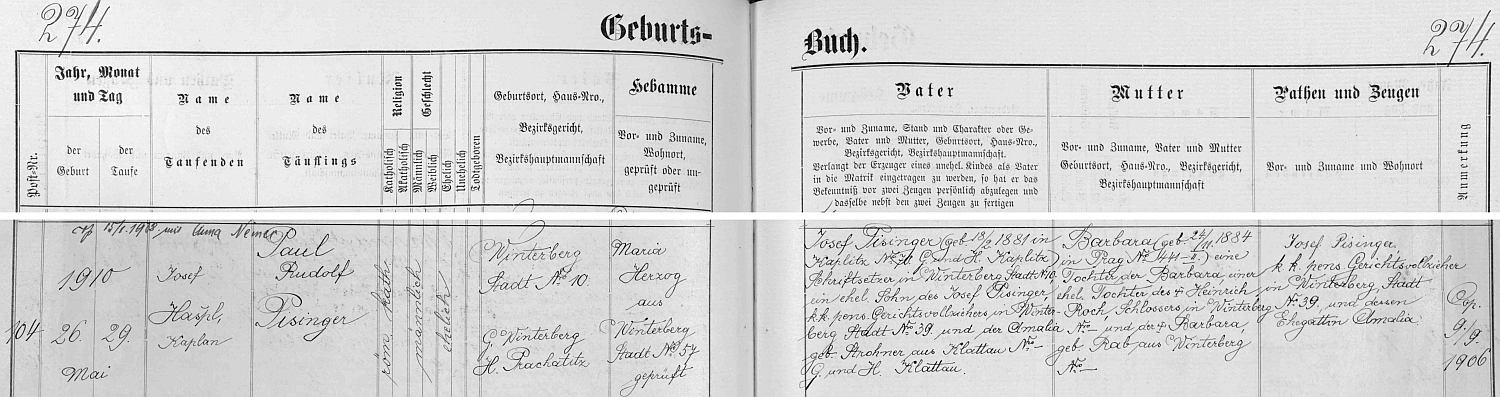 274.
Geburts-
Buch.
274.
Post-Nr.
Jahr, Monat
und Tag
der
Geburt
der
Taufe
Name
des
Taufenden
Name
des
Täuflings
Religion
Katholisch
Akatholisch
Geschlecht
Männlich
Weiblich
Ehelich
Unehelich
Todtgeboren
Geburtsort, Haus-Nro.,
Bezirksgericht,
Bezirkshauptmannschaft
Hebamme
Vor- und Zuname,
Wohnort,
geprüft oder un-
geprüft
Vater
Vor- und Zuname, Stand und Charakter oder Ge-
werbe, Vater und Mutter, Geburtsort, Haus-Nro.,
Bezirksgericht, Bezirkshauptmannschaft.
Verlangt der Erzeuger eines unehel. Kindes als Vater
in die Matrik eingetragen zu werden, so hat er das
Bekenntniß vor zwei Zeugen persönlich abzulegen und
dasselbe nebst den zwei Zeugen zu fertigen
Mutter
Vor- und Zuname, Vater und Mutter
Geburtsort, Haus-Nro., Bezirksgericht,
Bezirkshauptmannschaft
Pathen und Zeugen
Vor- und Zuname und Wohnort
Anmerkung
mit Anna Němec
104
1910
26. 29.
Mai
Josef
Haspl,
Kaplan
Paul
Rudolf
Pisinger
röm. kath.
männlich
ehelich
Winterberg
Stadt No 10.
G. Winterberg
H. Prachatitz
Maria
Herzog
aus
Winterberg
Stadt No 57
geprüft
Josef Pisinger (geb. 18/2 1881 in
Kaplitz No 36 G. und H. Kaplitz)
Schriftsetzer in Winterberg Stadt No 10,
ein ehel. Sohn des Josef Pisinger,
k k. pens. Gerichtsvollziehers in Winter-
berg Stadt No 39, und der Amalia
geb. Strohner aus Klattau No -
G. und H. Klattau.
Barbara (geb. 24/11. 1884
in Prag No 441-II.) eine
Tochter der Barbara einer
ehel. Tochter des + Heinrich
Roch, Schlossers in Winterberg
No - und der + Barbara
geb. Rab aus Winterberg
No -
Josef Pisinger
k. k. pens. Gerichtsvollzieher
in Winterberg, Stadt
No 39, und dessen
Ehegattin Amalia
Cop.
9./9.
1906